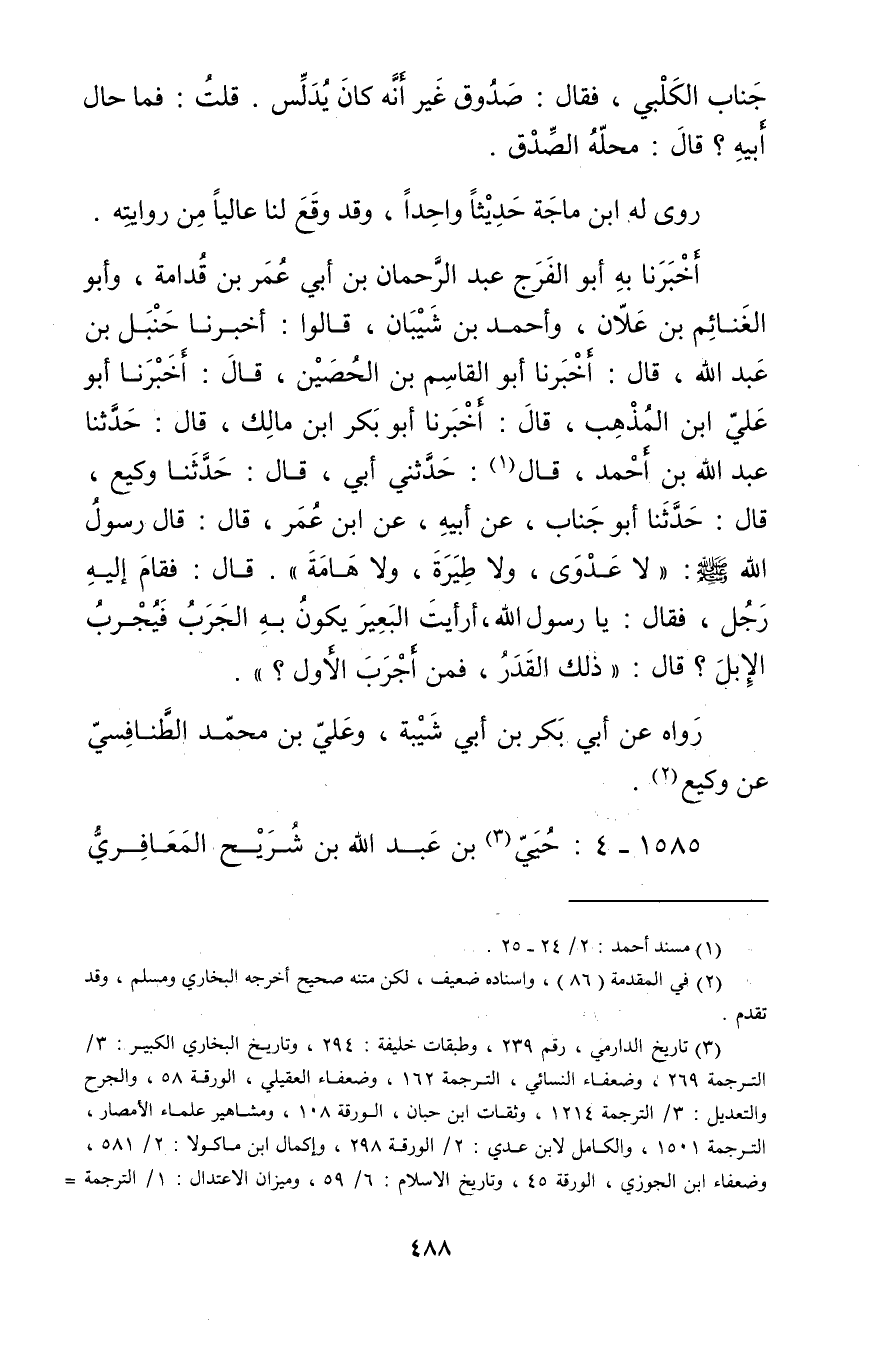 جَناب الكَلْبي ، فقال : صَدُوق غَير أَنَّه كانَ يُدَلِّس . قلتُ : فما حال
أَبيهِ ؟ قالَ : محلّهُ الصِّدْق .
روى له ابن ماجَة حَدِيْثاً واحِداً ، وقد وقَعَ لنا عالياً مِن روايتِه .
أَخْبَرَنا بهِ أبو الفَرَج عبد الرَّحمان بن أبي عُمَر بن قُدامة ، وأبو
الغَنـائِم بن عَلّان ، وأحمـد بن شَيْبَان ، قـالوا : أخبـرنـا حَنْبَـل بن
عَبد الله ، قال : أَخْبَرنا أبو القاسِم بن الحُصَيْن ، قـالَ : أَخَبْرَنـا أبو
عَليّ ابن المُذْهِب ، قالَ : أَخْبَرنا أبو بَكر ابن مالِك ، قال : حَدَّثنا
عبد الله بن أَحْمد ، قـال(١) : حَدَّثني أبي ، قـال : حَدَّثَنـا وكيع ،
قال : حَدَّثَنا أبو جَناب ، عن أبيهِ ، عن ابن عُمَر ، قال : قال رسولُ
الله ﷺ : « لا عَـدْوَى ، ولا طِيَرَةَ ، ولا هَـامَةَ » . قـال : فقامَ إليـهِ
رَجُل ، فقال : يا رسول الله ، أرأيتَ البَعِيرَ يكونُ بـهِ الجَرَبُ فَيُجْـربُ
الإِبلَ ؟ قال : « ذلك القَدَرُ ، فمن أَجْرَبَ الأَول ؟ » .
رَواه عن أبي بَكر بن أبي شَيْبة ، وعَليّ بن محمّـد الطَّنـافِسيّ
عن وكيع(٢) .
١٥٨٥ ـ ٤ : حُيَيّ(٣) بن عَبـد الله بن شُـرَيْـح المَعَـافِـريُّ
(١) مسند أحمد : ٢/ ٢٤ ـ ٢٥ .
(٢) في المقدمة ( ٨٦ ) ، واسناده ضعيف ، لكن متنه صحيح أخرجه البخاري ومسلم ، وقد
تقدم .
(٣) تاريخ الدارمي ، رقم ٢٣٩ ، وطبقات خليفة : ٢٩٤ ، وتاريـخ البخاري الكبيـر : ٣/
التـرجمة ٢٦٩ ، وضعفـاء النسائي ، التـرجمة ١٦٢ ، وضعفـاء العقيلي ، الورقـة ٥٨ ، والجرح
والتعديل : ٣/ الترجمة ١٢١٤ ، وثقـات ابن حبان ، الـورقة ١٠٨ ، ومشـاهير علمـاء الأمصار ،
التـرجمة ١٥٠١ ، والكـامل لابن عـدي : ٢/ الورقـة ٢٩٨ ، وإكمال ابن مـاكـولا : ٢/ ٥٨١ ،
وضعفاء ابن الجوزي ، الورقة ٤٥ ، وتاريخ الاسلام : ٦/ ٥٩ ، وميزان الاعتدال : ١/ الترجمة =
٤٨٨